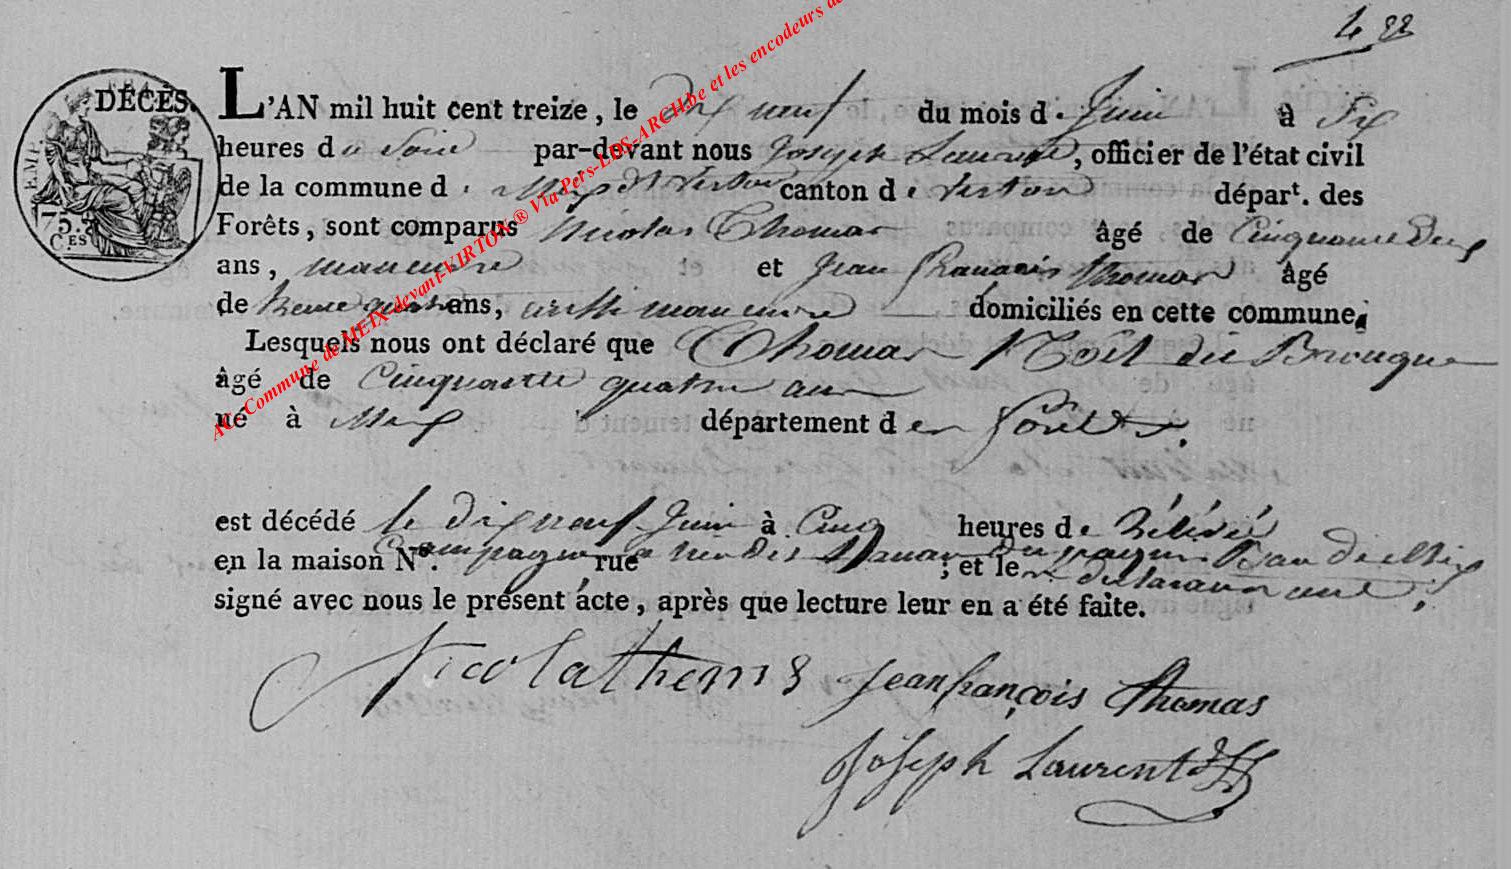 4 22
DÉCÈS.
EMP. FRA
75.
CES
L'AN mil huit cent treize, le dix neuf du mois de Juin à Six
heures du Soir par-devant nous Joseph Laurent, officier de l'état civil
de la commune de Meix dt Virton canton de Virton départ. des
Forêts, sont comparus Nicolas Thomas âgé de Cinquante Deux
ans, manœuvre et Jean françois thomas âgé
de trente quatre ans, aussi manœuvre domiciliés en cette commune;
Lesquels nous ont déclaré que Thomas Noël du Brouque
âgé de Cinquante quatre ans
né à Meix département des forêts.
est décédé le dix neuf Juin à Cinq heures de
en la maison No. Campagne rue ; et le Ban de Meix
déclarans ont
signé avec nous le présent acte, après que lecture leur en a été faite.
Nicolathoms Jeanfrançois thomas
Joseph Laurent
AC. Commune de MEIX-devant-VIRTON ® Via Pers-LDS-ARCH.be et les encodeurs de